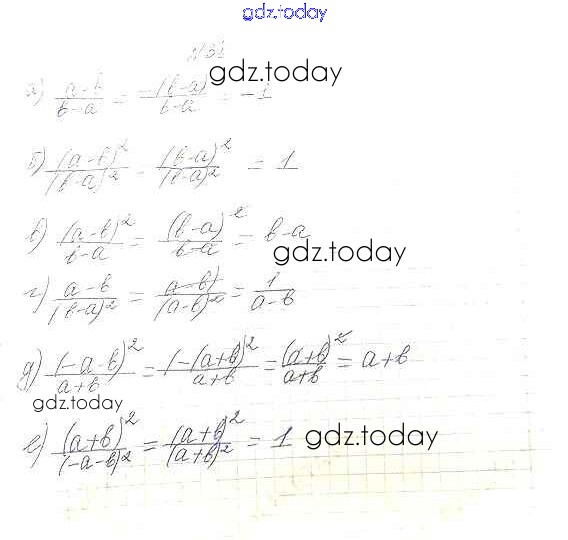 gdz.today
gdz.today
а) (a-b)/(b-a) = -(b-a)/(b-a) = -1
б) (a-b)²/(b-a)² = (b-a)²/(b-a)² = 1
в) (a-b)²/(b-a) = (b-a)²/(b-a) = b-a
gdz.today
г) (a-b)/(b-a)² = (a-b)/(a-b)² = 1/(a-b)
д) (-a-b)²/(a+b) = (-(a+b))²/(a+b) = (a+b)²/(a+b) = a+b
gdz.today
е) (a+b)²/(-a-b)² = (a+b)²/(a+b)² = 1
gdz.today